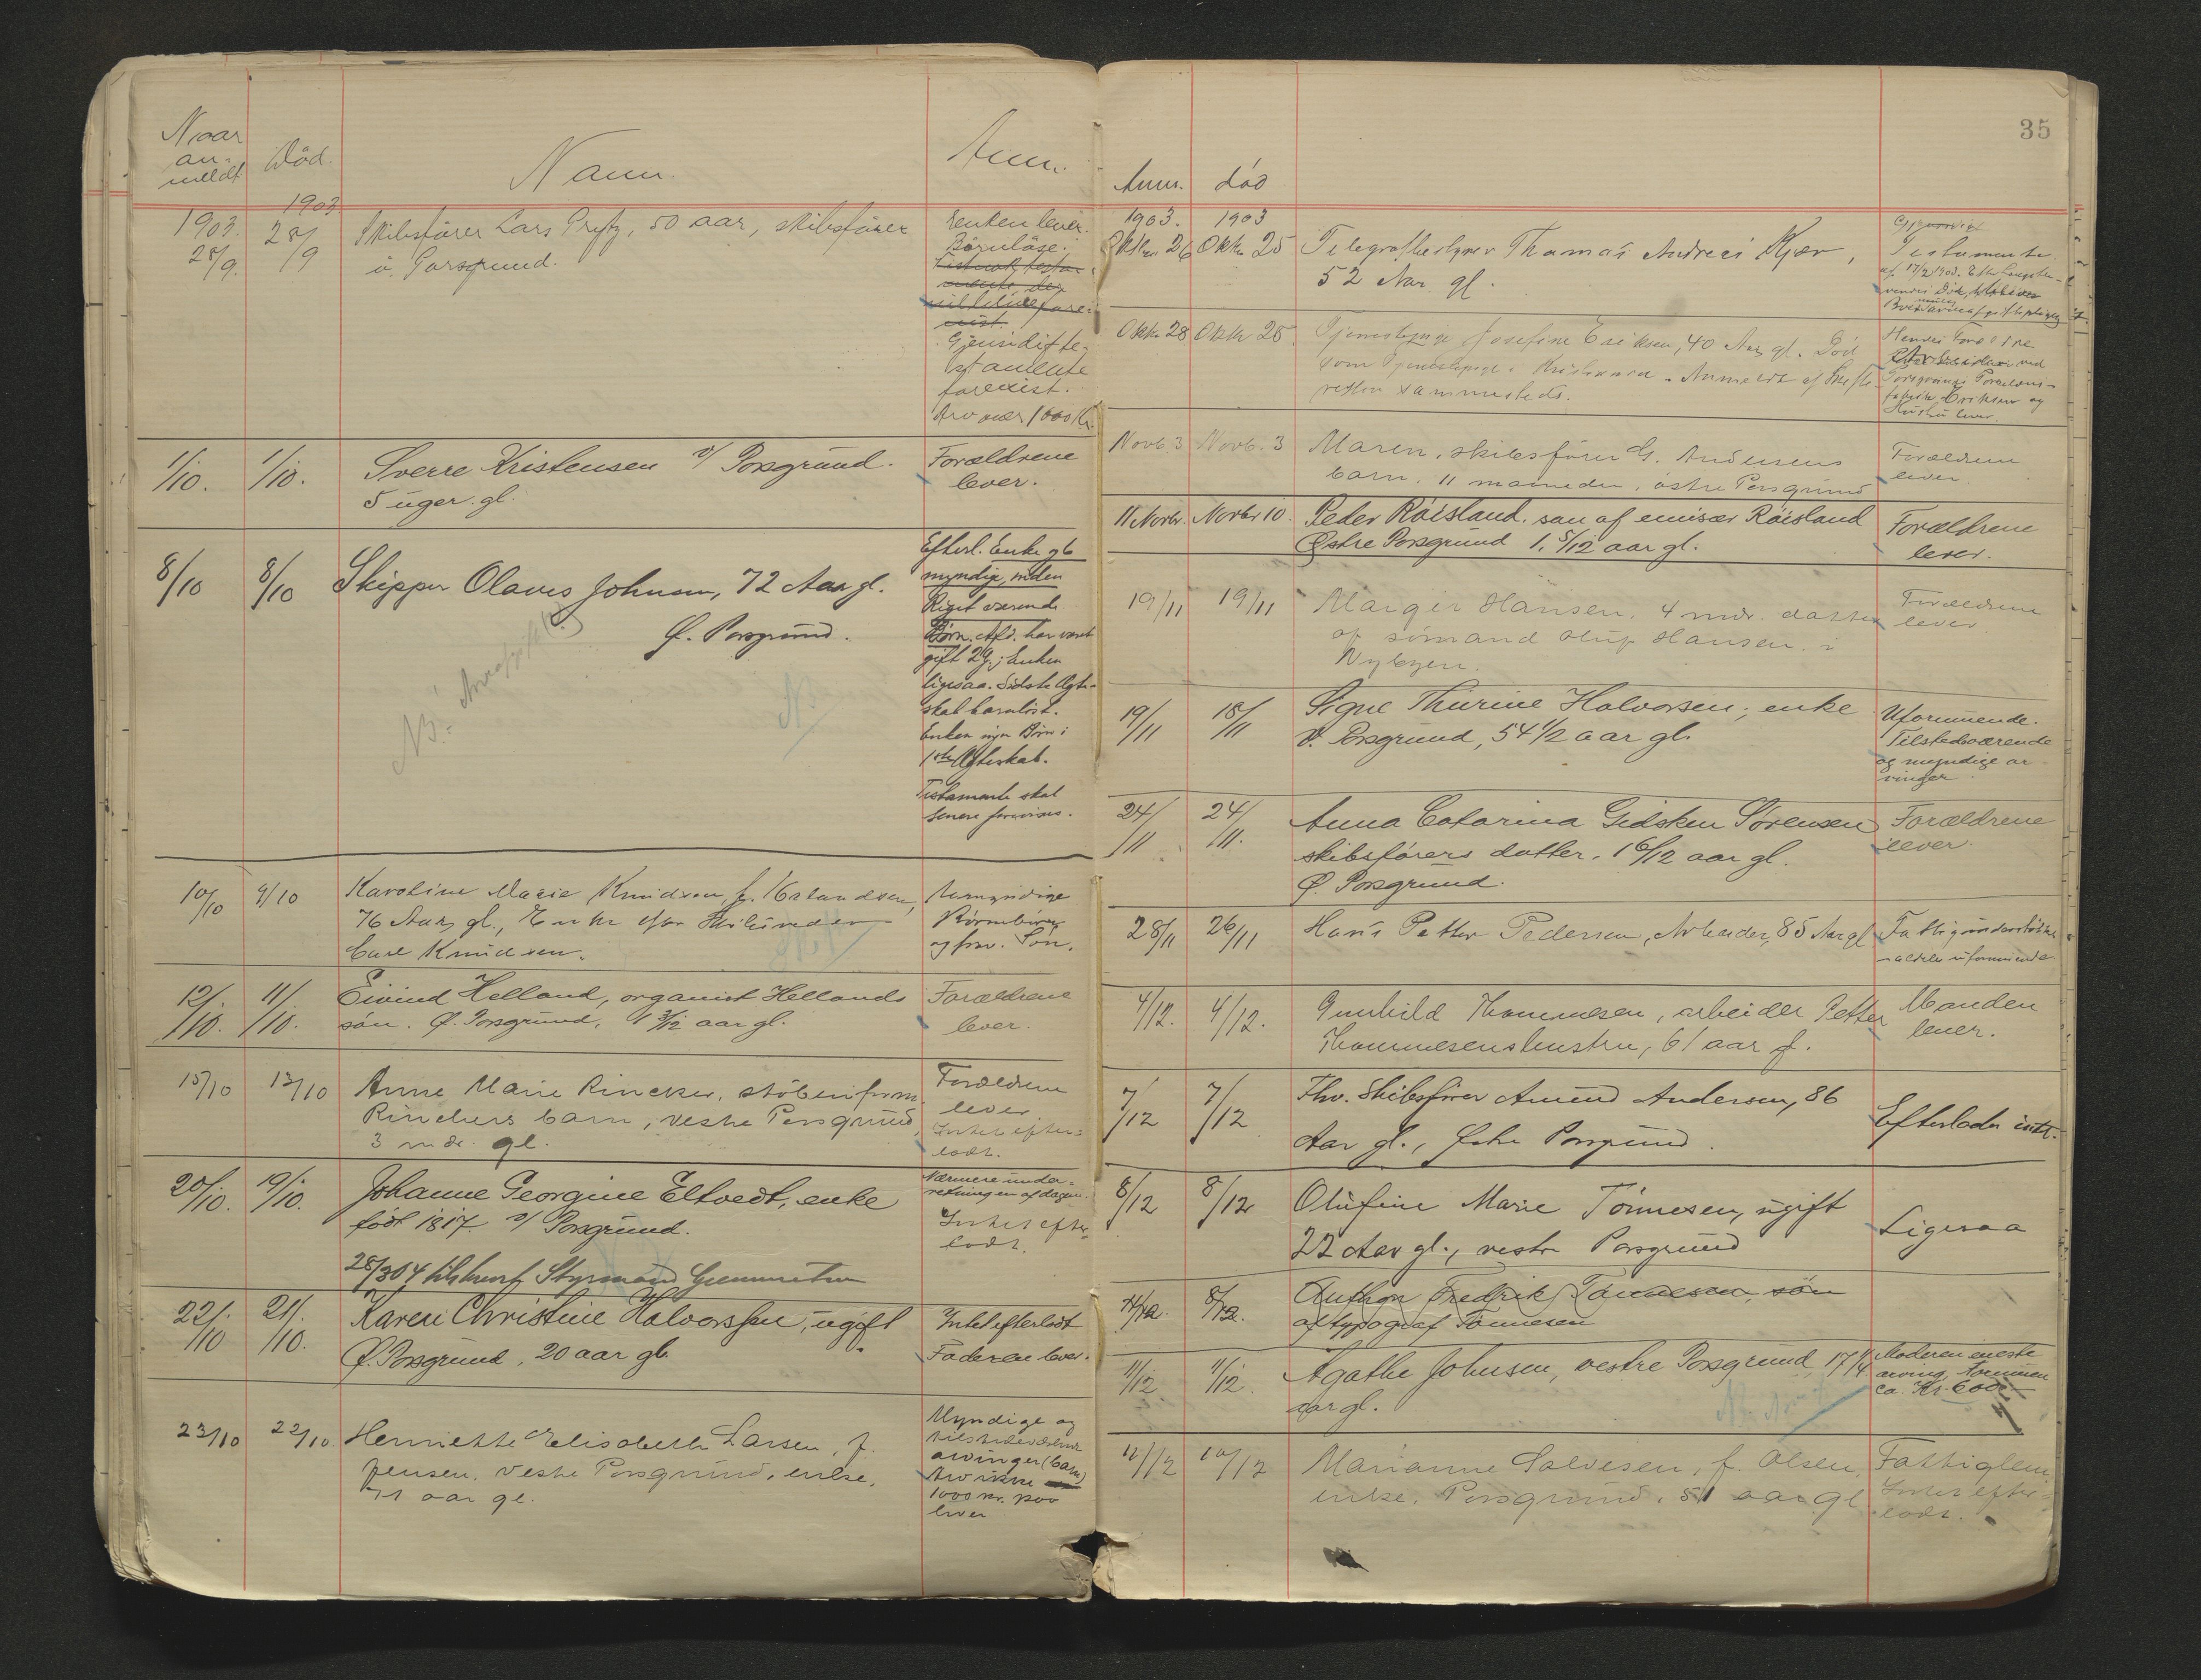 Naar
an-
meldt
Död.
Navn.
Anm.
1903
1903.
28/9.
28/9
Skibsfører Lars Preftz, 50 aar, skibsfører
ö. Porsgrund.
Enken lever.
Börnlöse.
Gjensidig te-
stamente
foreexist.
Arv over 1000 Kr.
1/10.
1/10.
Sverre Kristensen v/ Porsgrund.
5 uger gl.
Forældrene
lever.
8/10
8/10
Skipper Olaves Johnsen, 72 Aar gl.
Ø. Porsgrund.
NB. Arveafgift
NB
Efterl. Enke og
myndige, inden
Riget værende
Børn. Afd. har været
gift 2 G; Enken
ligesaa. Sidste Ægte-
skab barnløst.
Enken ingen Børn i
1ste Ægteskab.
Testamente skal
senere forevises.
10/10
9/10
Karoline Marie Knudsen, f.
76 Aar gl., Enke efter
Carl Knudsen.
Umyndige
Börnebörn
og frav. Sön.
12/10.
11/10.
Eivind Helland, organist Hellands
søn. Ø. Porsgrund. 1 3/12 aar gl.
Forældrene
lever.
15/10
13/10
Anne Marie Rincker, støberiform.
Rinckers barn, vestre Porsgrund,
3 mdr. gl.
Forældrene
lever.
Intet efter-
ladt.
20/10.
19/10.
Johanne Georgine Eltvedt, enke
født 1817. v/ Porsgrund.
28/3 04 tilskrevet Styrmand
Nærmere under-
retning en af dagene.
Intet efter-
ladt.
22/10
21/10.
Karen Christine Halvorssen, ugift
Ø. Porsgrund, 20 aar gl.
Intet efterladt
Faderen lever.
23/10
22/10
Henriette Elisabeth Larsen, f.
Jensen. Vestre Porsgrund, enke,
71 aar gl.
Myndige og
tilstedeværende
arvinger (barn)
Arv ikke
1000 kr. pro
liver
35
Anm.
død
1903.
1903
Oktbr 26
Oktbr 25
Telegrafbestyrer Thomas Andreas Kjær,
52 Aar gl.
Gjensidigt
Testamente
af 17/2 1903. Efter Længstle-
vendes Død,
Oktbr 28
Oktbr 25
Tjenestepige Josefine Eriksen, 40 Aar gl. Död
som Tjenestepige i Kristiania. Anmeldt af Skifte-
retten sammesteds.
Hendes Forældre
Arbeider ved
Porsgrunds Porcelæns-
fabrik Eriksen og
Hustru lever.
Novb. 3
Novb. 3
Maren, skibsfører G. Andersens
barn. 11 maaneder, østre Porsgrund
Forældrene
lever
11 Novbr.
Novbr 10.
Peder Röisland, søn af emisær Röisland
Østre Porsgrund 1. 5/12 aar gl.
Forældrene
lever.
19/11
19/11
Margit Hansen, 4 mdr. datter
af sømand Oluf Hansen i
Nybyen.
Forældrene
lever
19/11
18/11
Signe Thurine Halvorsen; enke
V. Porsgrund, 54 1/2 aar gl.
Uformuende.
Tilstedeværende
og myndige ar-
vinger.
24/11
24/11.
Anna Catarina Gidsken Sørensen
skibsførers datter. 1 6/12 aar gl.
Ø. Porsgrund.
Forældrene
lever.
28/11
26/11
Hans Petter Pedersen, Arbeider, 85 Aar gl
Fattigunderstöttet
- aldeles uformuende
4/12.
4/12.
Gunhild Thommesen, arbeider Petter
Thommesens hustru, 61 aar g.
Manden
lever.
7/12
7/12
Fhv. Skibsfører Amund Andersen, 86
Aar gl., Østre Porsgrund.
Efterlader intet.
8/12
8/12
Olufine Marie Tönnesen, ugift
22 Aar gl., vestre Porsgrund
Ligesaa
11/12
8/12.
Anthon Fredrik Tønnesen, søn
af typograf Tønnesen
11/12
11/12.
Agathe Johnsen, vestre Porsgrund, 17 1/4
aar gl.
Moderen eneste
arving, formuen
ca. Kr. 600.
12/12
10/12
Marianne Salvesen, f. Olsen,
enke, Porsgrund. 51 aar gl
Fattiglem.
Intet efter-
ladt.